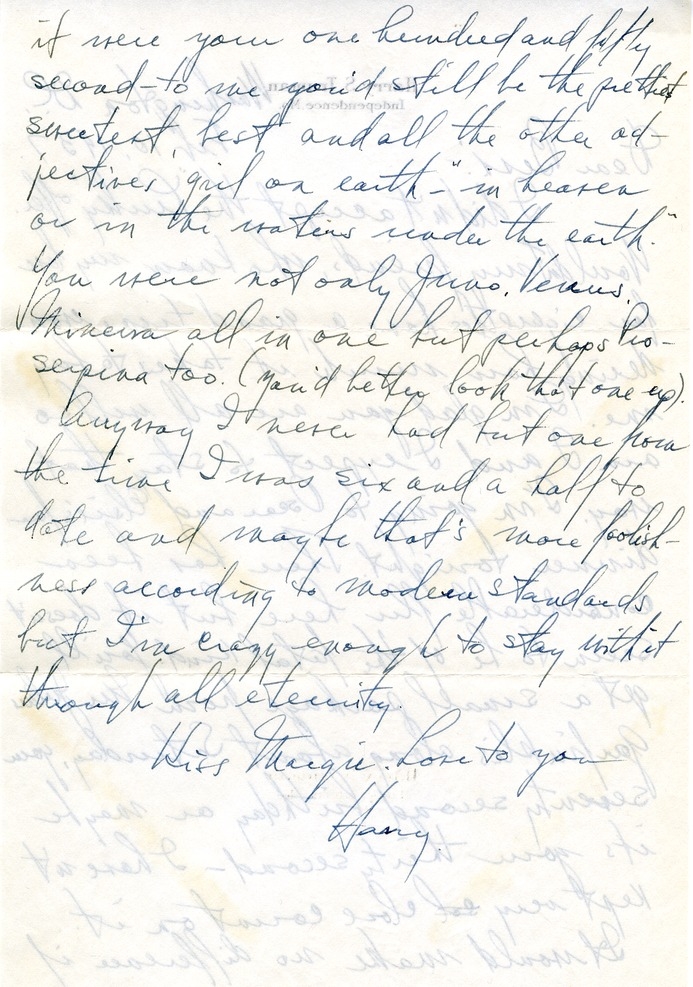 it were your one hundred and fifty
second - to me you'd still be the prettiest
sweetest, best and all the other ad-
jectives, girl on earth - "in heaven
or in the waters under the earth."
You were not only Juno, Venus,
Minerva all in one but perhaps Pro-
serpina too. (you'd better look that one up).
Anyway I never had but one from
the time I was six and a half to
date and maybe that's more foolish-
ness according to modern standards
but I'm crazy enough to stay with it
through all eternity.
Kiss Margie. Love to you
Harry.